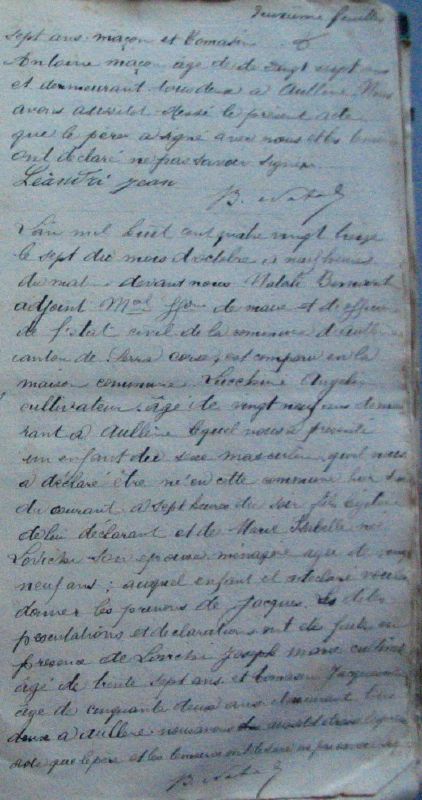 Deuxième feuillet
sept ans maçon et Tomasini
Antoine maçon âgé de vingt sept ans
et demeurant tous deux à Aullène. Nous
avons aussitôt dressé le présent acte
que le père a signé avec nous et les témoins
ont déclaré ne pas savoir signer
Léandri Jean
L'an mil huit cent quatre vingt treize
le sept du mois d'octobre à neuf heures
du matin devant nous Natali
adjoint Mal ffon de maire et d'officier
de l'état civil de la commune d'Aullène
canton de Serra corse, est comparu en la
maison commune Lucchini Angelin
cultivateur âgé de vingt neuf ans demeu
rant à Aullène lequel nous a présenté
un enfant du sexe masculin qu'il nous
a déclaré être né en cette commune
du courant à sept heures du soir fils légitime
de lui déclarant et de Marie Isabelle née
son épouse ménagère agée de vingt
neuf ans ; auquel enfant il a déclaré vouloir
donner les prénoms de Jacques. Les dites
présentations et déclarations ont été faites en
présence de Joseph Marie cultivateur
âgé de trente sept ans et Tomasini
âgé de cinquante deux ans demeurant tous
deux à Aullène nous avons aussitôt dressé le présent
acte que le père et les témoins ont déclaré ne pas savoir signer